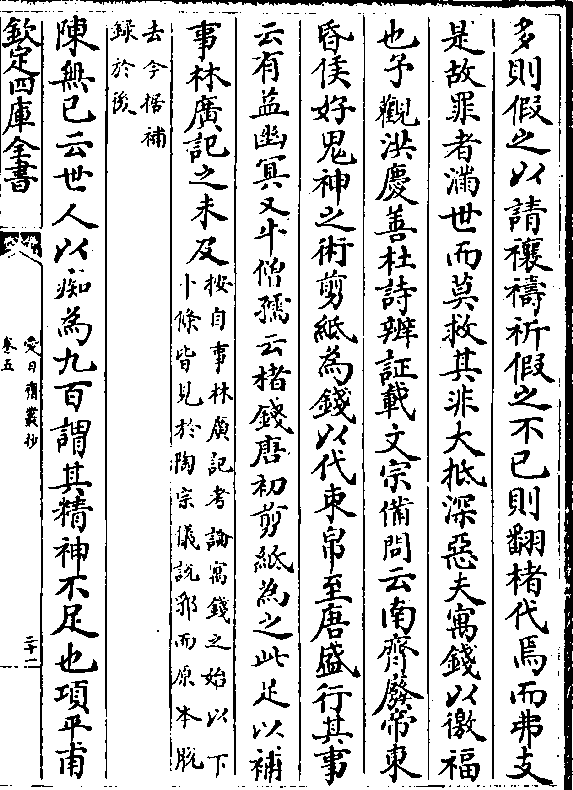 多則假之以請禳禱祈假之不已則翻楮代焉而弗支
是故罪者滿世而莫救其非大抵深惡夫寓錢以徼福
也予觀洪慶善杜詩辨証載文宗備問云南齊廢帝東
昏侯好鬼神之術剪紙為錢以代束帛至唐盛行其事
云有益幽冥又牛僧孺云楮錢唐初剪紙為之此足以補
事林廣記之未及按自事林廣記考論寓錢之始以下
十條皆見於陶宗儀說郛而原本脫
去今據補
録於後
陳無已云世人以痴為九百謂其精神不足也項平甫
欽定四庫全書
愛日齋叢抄
卷五
二十二